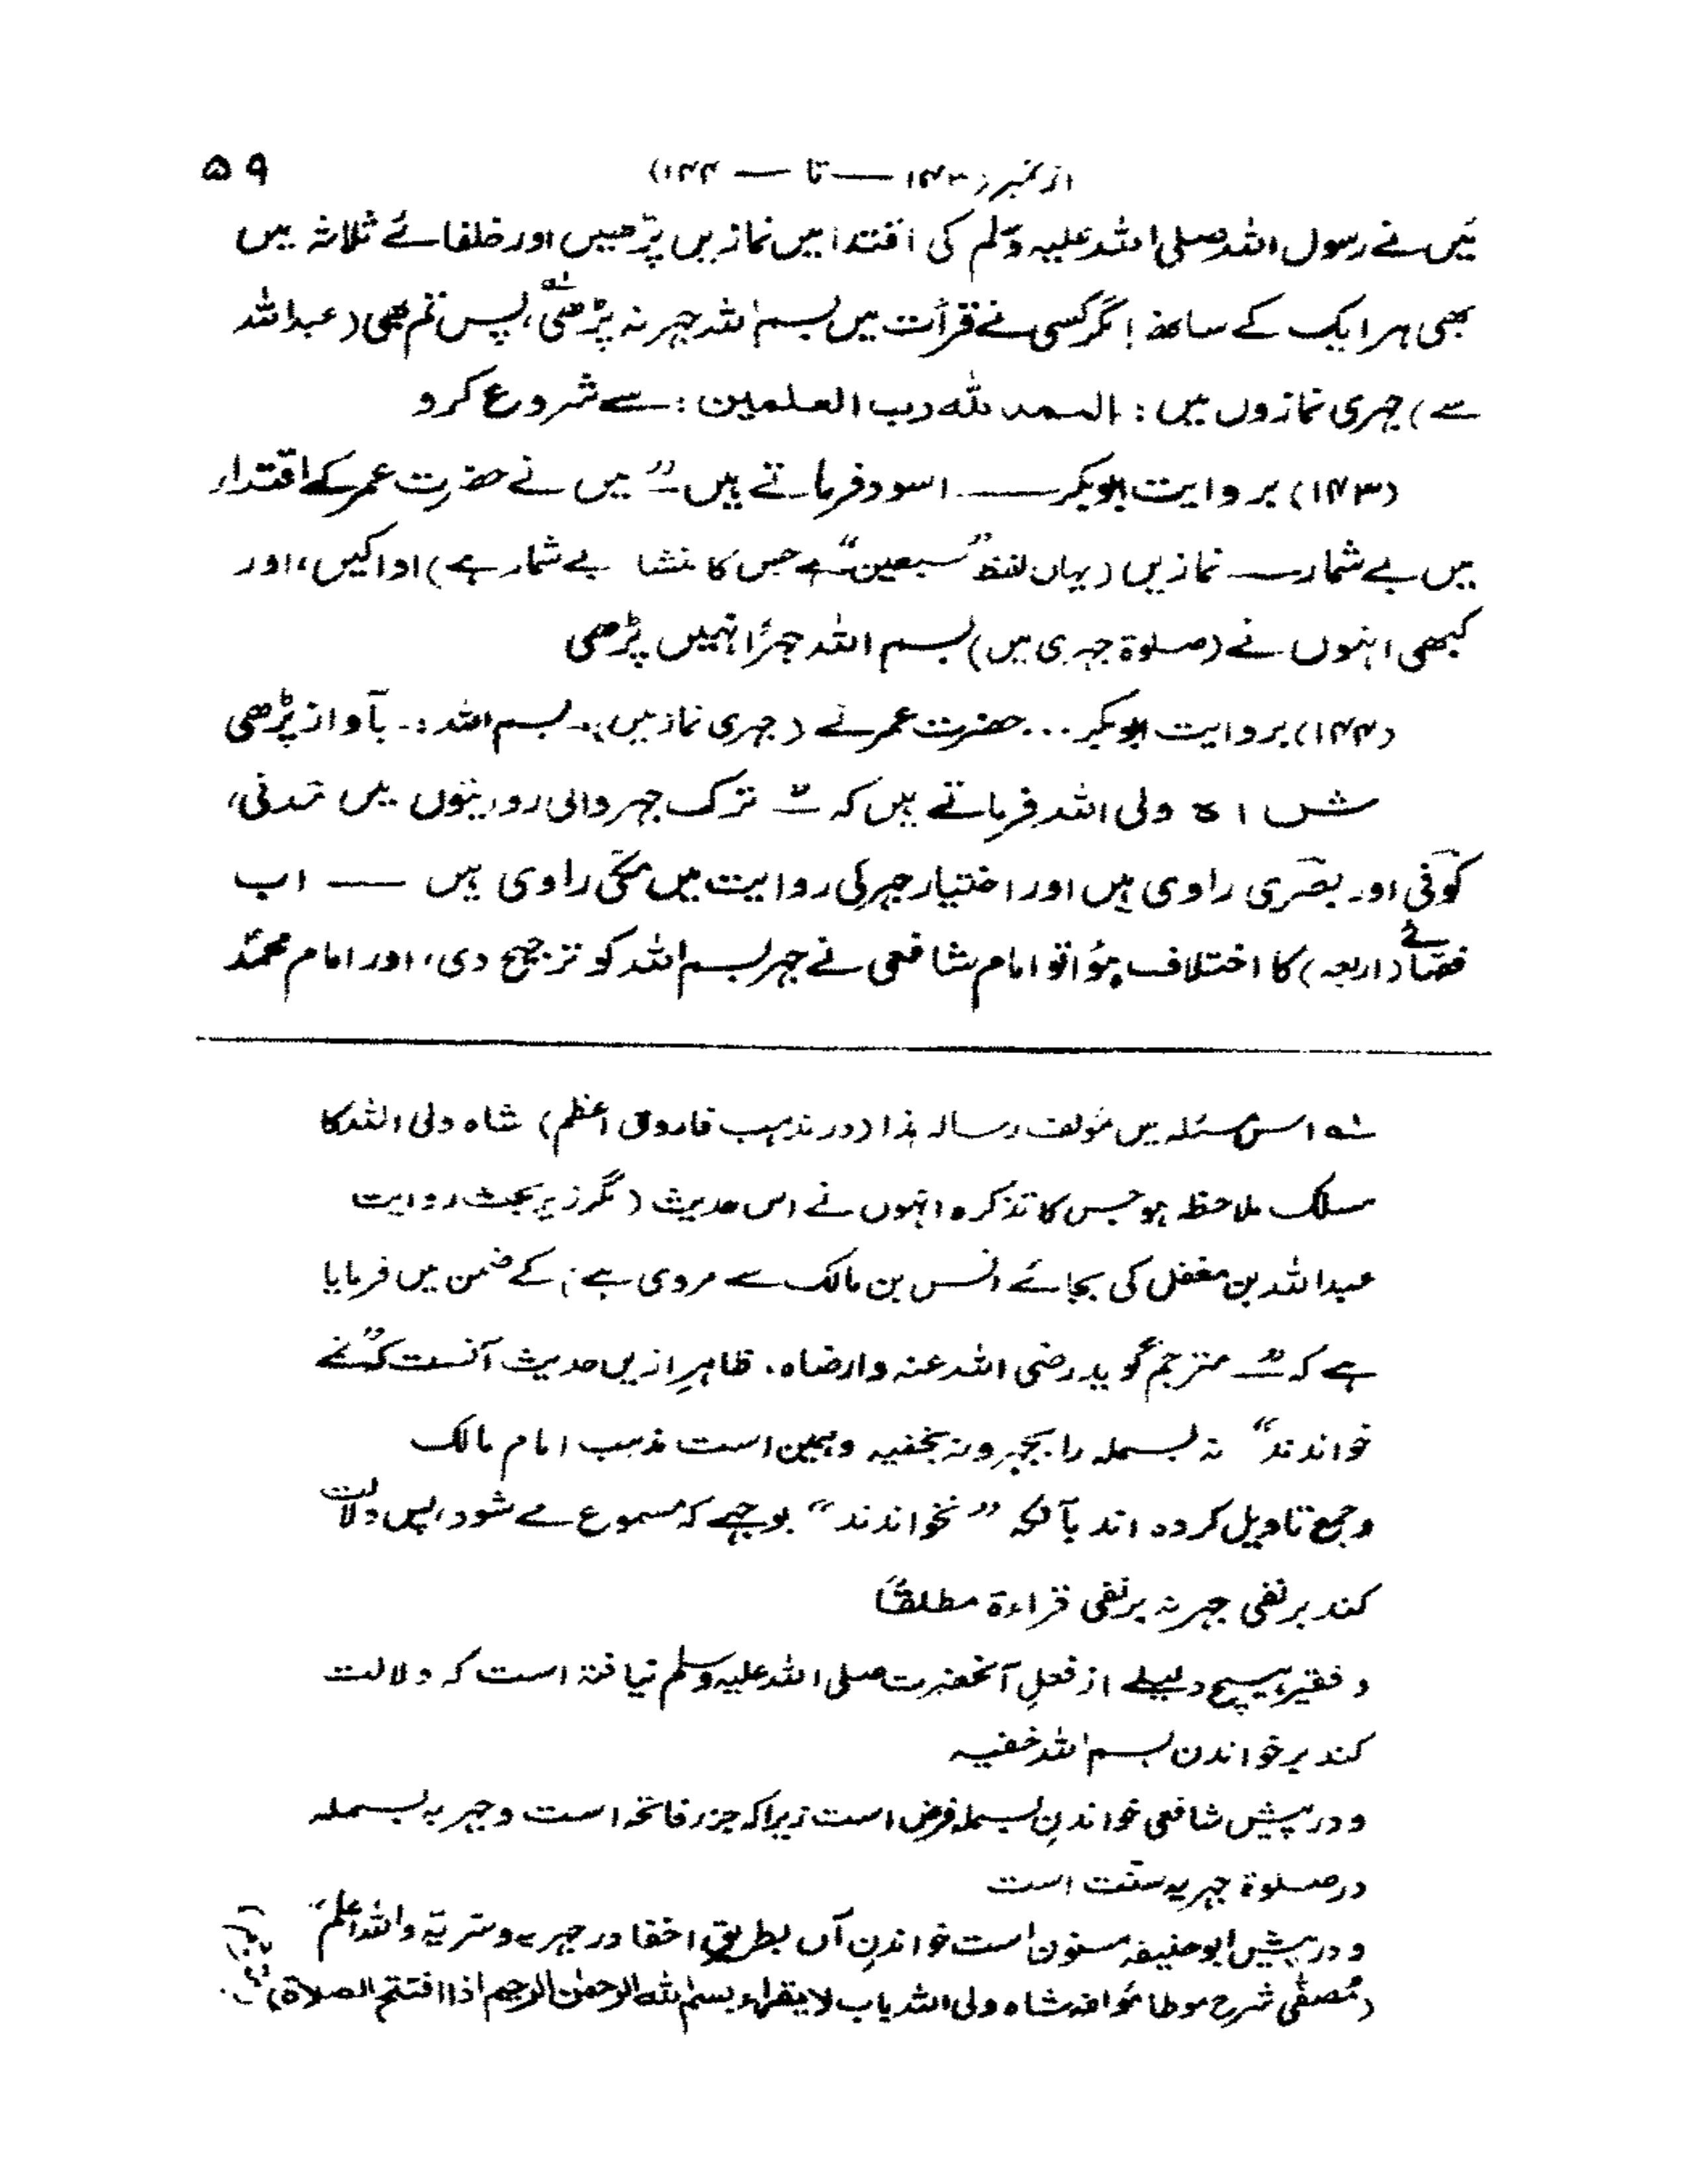 از نمبر (۱۴۳ — تا — ۱۴۴) ۵۹
میں نے رسول اللہ صلی اللہ علیہ وسلم کی اقتدا میں نمازیں پڑھیں اور خلفائے ثلاثہ میں
بھی ہر ایک کے ساتھ! مگر کسی نے قرأت میں بسم اللہ جہر نہ پڑھی لہ، پس تم بھی (عبداللہ
سے) جہری نمازوں میں : الحمد للہ رب العلمین : سے شروع کرو
(۱۴۳) بروایت ابوبکر —— اسود فرماتے ہیں ـ" میں نے حضرت عمر کے اقتدار
میں بے شمار — نمازیں (یہاں لفظ "سبعین" ہے جس کا منشا بے شمار ہے) ادا کیں، اور
کبھی انہوں نے (صلوۃ جہری میں) بسم اللہ جہراً نہیں پڑھی
(۱۴۴) بروایت ابوبکر ... حضرت عمر نے (جہری نماز میں) :۔ بسم اللہ :۔ بآواز پڑھی
شاہ ولی اللہ فرماتے ہیں کہ ـ" ترک جہر والی روایتوں میں مدنی،
کوفی اور بصری راوی ہیں اور اختیار جہر کی روایت میں مکی راوی ہیں —— اب
فقہائے (اربعہ) کا اختلاف ہؤا تو امام شافعی نے جہر بسم اللہ کو ترجیح دی، اور امام محمدؒ
لہ اس مسئلہ میں مؤلف رسالہ ہذا (در مذہب فاروق اعظم) شاہ ولی اللہ کا
مسلک ملاحظہ ہو جس کا تذکرہ انہوں نے اس حدیث (مگر زیر بحث روایت
عبداللہ بن مغفل کی بجائے انس بن مالک سے مروی ہے) کے ضمن میں فرمایا
ہے کہ ـ" مترجم گوید رضی اللہ عنہ وارضاہ۔ ظاہر ازیں حدیث آنست کہ "نمے
خواندند" نہ بسملہ را بجہر و نہ بخفیہ و ہمین است مذہب امام مالک
و جمع تاویل کردہ اند بآنکہ "نخواندند" بوجہے کہ مسموع مے شود، پس دلالت
کند بر نفی جہر نہ بر نفی قراءۃ مطلقاً
و فقیر ہیچ دلیلے از فعلِ آنحضرت صلی اللہ علیہ وسلم نیافتہ است کہ دلالت
کند بر خواندن بسم اللہ خفیہ
و در پیش شافعی خواندنِ بسملہ فرض است زیراکہ جزر فاتحہ است و جہر بہ بسملہ
در صلوۃ جہریہ سنّت است
و در پیش ابوحنیفہ مسنون است خواندنِ آں بطریق اخفا در جہریہ و سرّیّہ واللہ اعلم"
(مُصفّٰی شرح موطا مؤلفہ شاہ ولی اللہ باب لا یقراء بسم اللہ الرحمٰن الرحیم اذا افتتح الصلاۃ)